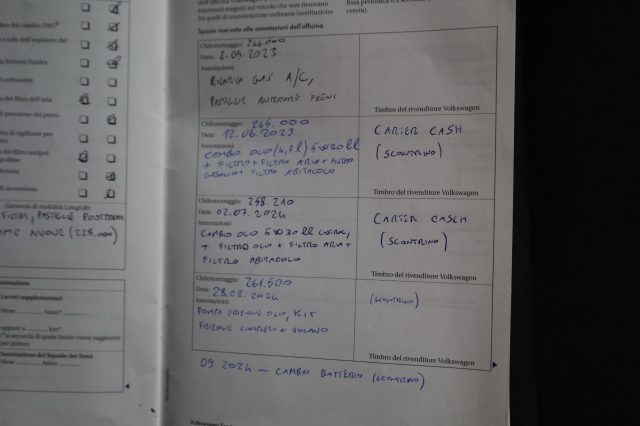 interventi eseguiti sul veicolo che non rientrano
tra quelli di manutenzione ordinaria (sostituzione
cetera).
Spazio riservato alle annotazioni dell'officina
Chilometraggio: 244.000
Data: 2.05.2023
Annotazioni:
RICARICA GAS A/C,
PASTIGLIE ANTERIORI FRENI
Timbro del rivenditore Volkswagen
Chilometraggio: 245.000
Data: 12.06.2023
Annotazioni:
CAMBIO OLIO (4,3 l) 5W30 ll
+ FILTRO + FILTRO ARIA + FILTRO
GASOLIO + FILTRO ABITACOLO
CARTER CASH
(SCONTRINO)
Timbro del rivenditore Volkswagen
Chilometraggio: 258.210
Data: 02.07.2024
Annotazioni:
CAMBIO OLIO 5W30 ll
+ FILTRO OLIO + FILTRO ARIA +
FILTRO ABITACOLO
CARTER CASH
(SCONTRINO)
Timbro del rivenditore Volkswagen
Chilometraggio: 261.500
Data: 28.08.2024
Annotazioni:
POMPA FRIZIONE OLIO, KIT
FRIZIONE COMPLETO + VOLANO
(SCONTRINO)
Timbro del rivenditore Volkswagen
09.2024 ~ CAMBIO BATTERIA (SCONTRINO)
del cambio DSG
carburante
del filtro dell'aria
di accensione
Garanzia di mobilità LongLife:
FILTRI, PASTIGLIE POSTERIORI
NUOVE (228.000)
Lavori supplementari
Mese Anno*
oppure a km*
* a seconda di quale limite viene raggiunto
per primo
Sostituzione del liquido dei freni
Mese Anno